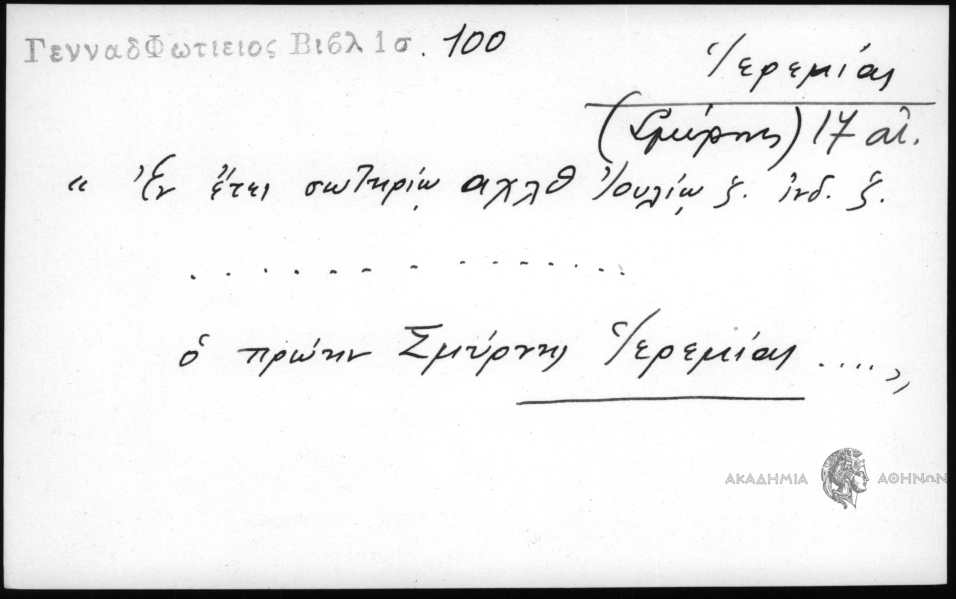 ΓενναδΦωτιειος Βιβλ 1σ. 100
Ἱερεμίας
(Σμύρνης) 17 αἰ.
« Ἐν ἔτει σωτηρίῳ αχλθ Ἰουλίῳ ζ. ἰνδ. ζ.
. . . . . . . . . . . . . . .
ὁ πρώην Σμύρνης Ἱερεμίας ....»
ΑΚΑΔΗΜΙΑ ΑΘΗΝΩΝ